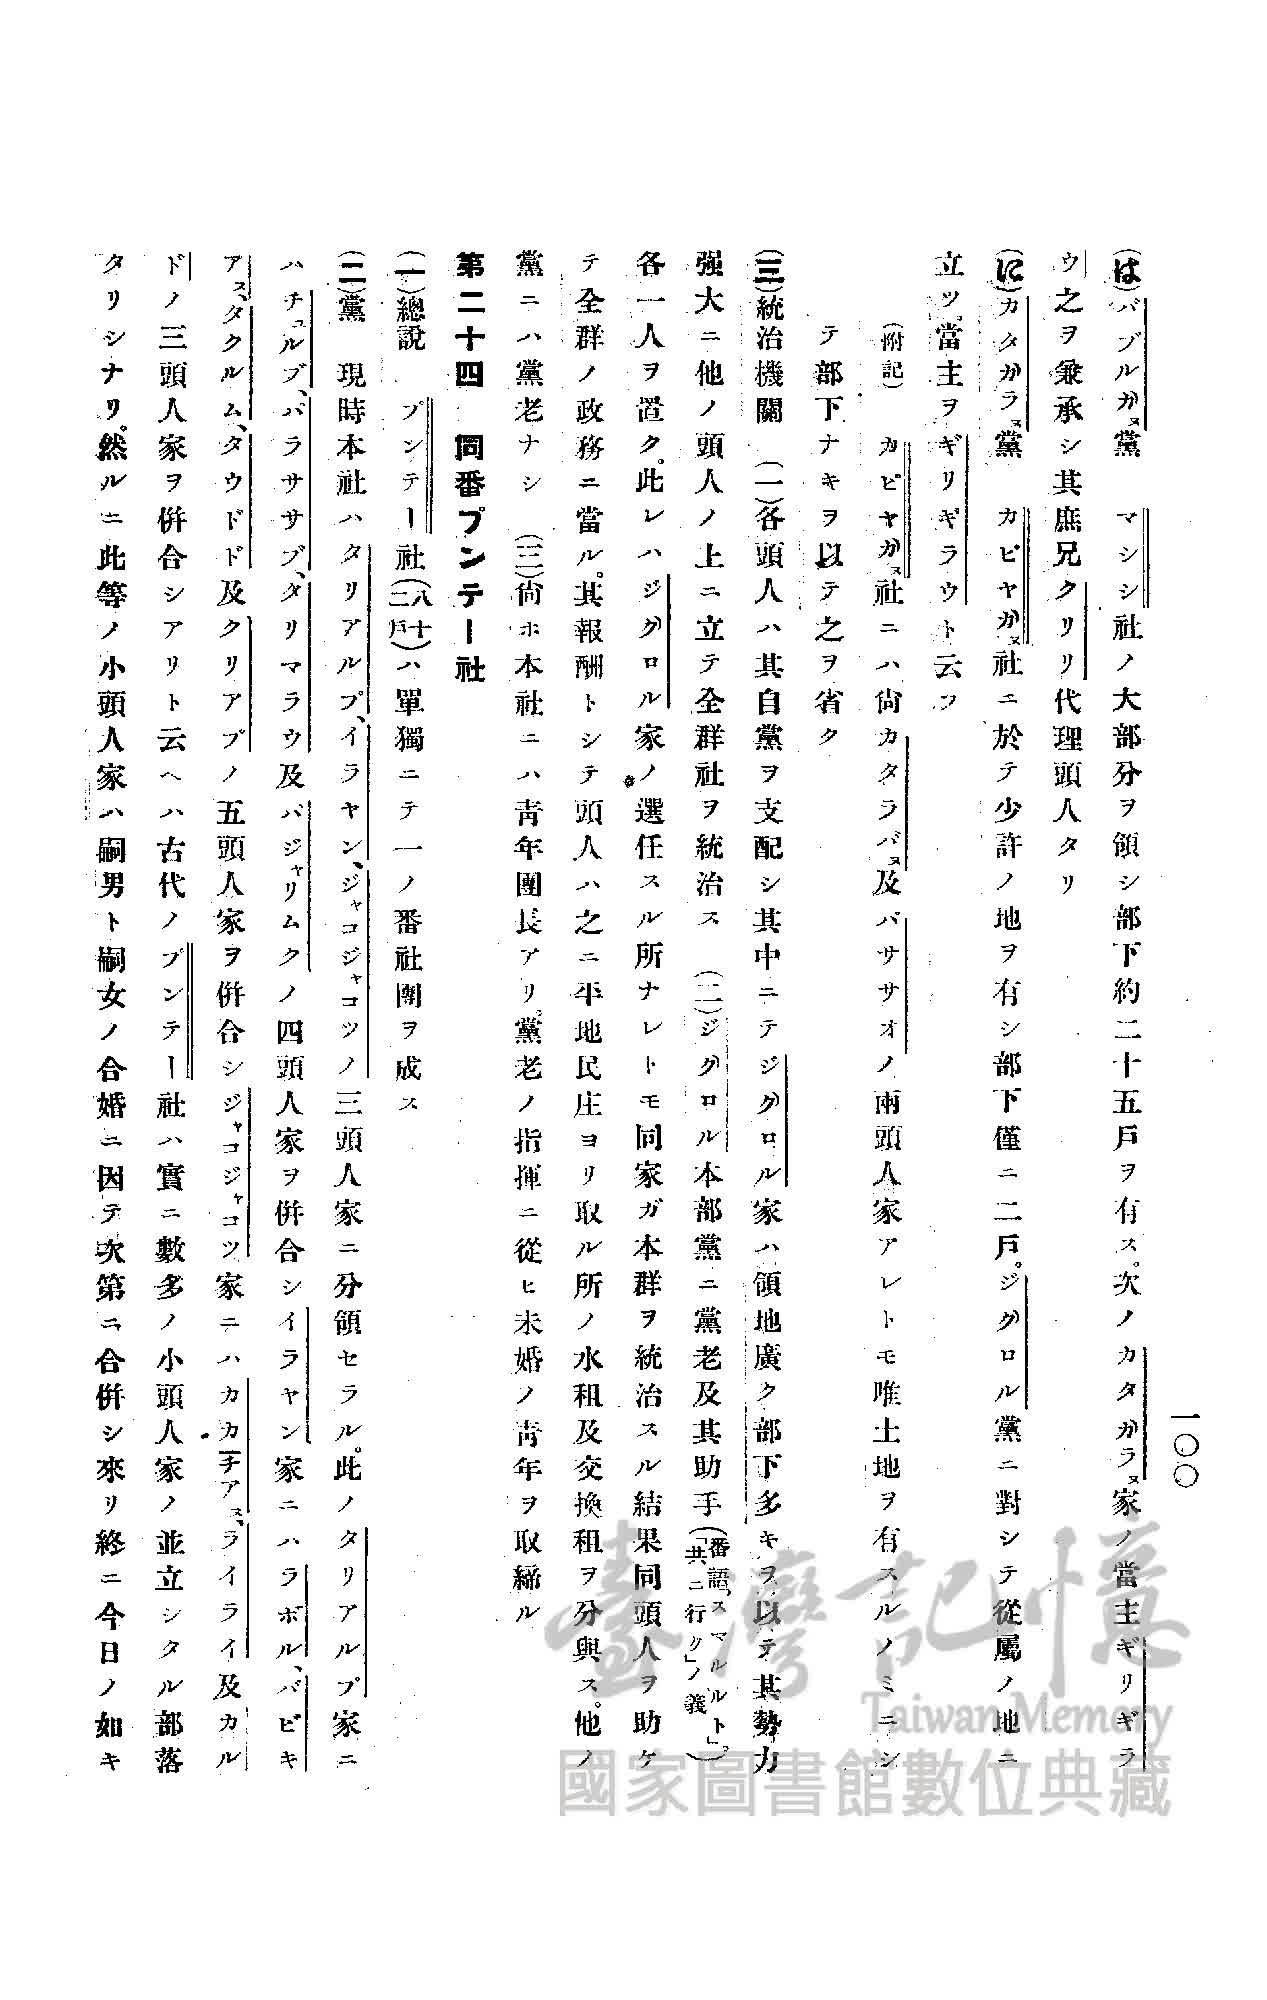 一〇〇
(は)バブルガヌ黨　マシシ社ノ大部分ヲ領シ部下約二十五戶ヲ有ス。次ノカタガラヌ家ノ當主ギリギラ
ウ之ヲ兼承シ其庶兄クリリ代理頭人タリ
(に)カタガラヌ黨　カピヤガヌ社ニ於テ少許ノ地ヲ有シ部下僅ニ二戶。ジグロル黨ニ對シテ從屬ノ地ニ
立ツ。當主ヲギリギラウト云フ
(附記)　カピヤガヌ社ニハ尙カタラバヌ及バササオノ兩頭人家アレトモ唯土地ヲ有スルノミニシ
テ部下ナキヲ以テ之ヲ省ク
(三)統治機關　(一)各頭人ハ其自黨ヲ支配シ其中ニテジグロル家ハ領地廣ク部下多キヲ以テ其勢力
强大ニ他ノ頭人ノ上ニ立テ全群社ヲ統治ス　(二)ジグロル本部黨ニ黨老及其助手(番語、スマルルト」。「共ニ行ク」ノ義)
各一人ヲ置ク。此レハジグロル家ノ選任スル所ナレトモ同家ガ本群ヲ統治スル結果同頭人ヲ助ケ
テ全群ノ政務ニ當ル。其報酬トシテ頭人ハ之ニ平地民庄ヨリ取ル所ノ水租及交換租ヲ分與ス。他ノ
黨ニハ黨老ナシ　(三)尙ホ本社ニハ靑年團長アリ。黨老ノ指揮ニ從ヒ未婚ノ靑年ヲ取締ル
第二十四　同番プンテー社
(一)總說　プンテー社(八十三戶)ハ單獨ニテ一ノ番社團ヲ成ス
(二)黨　現時本社ハタリアルプ、イラヤン、ジャコジャコツノ三頭人家ニ分領セラル。此ノタリアルプ家ニ
ハチュルブ、バラササブ、タリマラウ及バジャリムクノ四頭人家ヲ併合シイラヤン家ニハラボル、バビキ
アス、タクルム、タウドド及クリアブノ五頭人家ヲ併合シジャコジャコツ家ニハカカチアス、ライライ及カル
ドノ三頭人家ヲ併合シアリト云ヘハ古代ノプンテー社ハ實ニ數多ノ小頭人家ノ並立シタル部落
タリシナリ。然ルニ此等ノ小頭人家ハ嗣男ト嗣女ノ合婚ニ因テ次第ニ合併シ來リ終ニ今日ノ如キ
臺灣記憶
Taiwan Memory
國家圖書館數位典藏